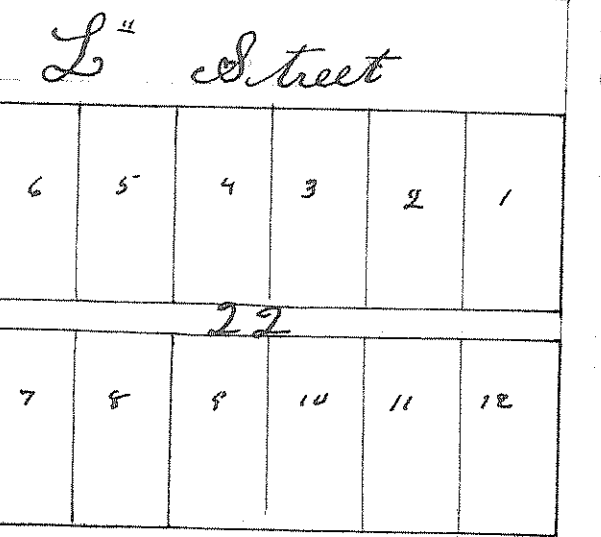 L" Street
6 5 4 3 2 1
22
7 8 9 10 11 12